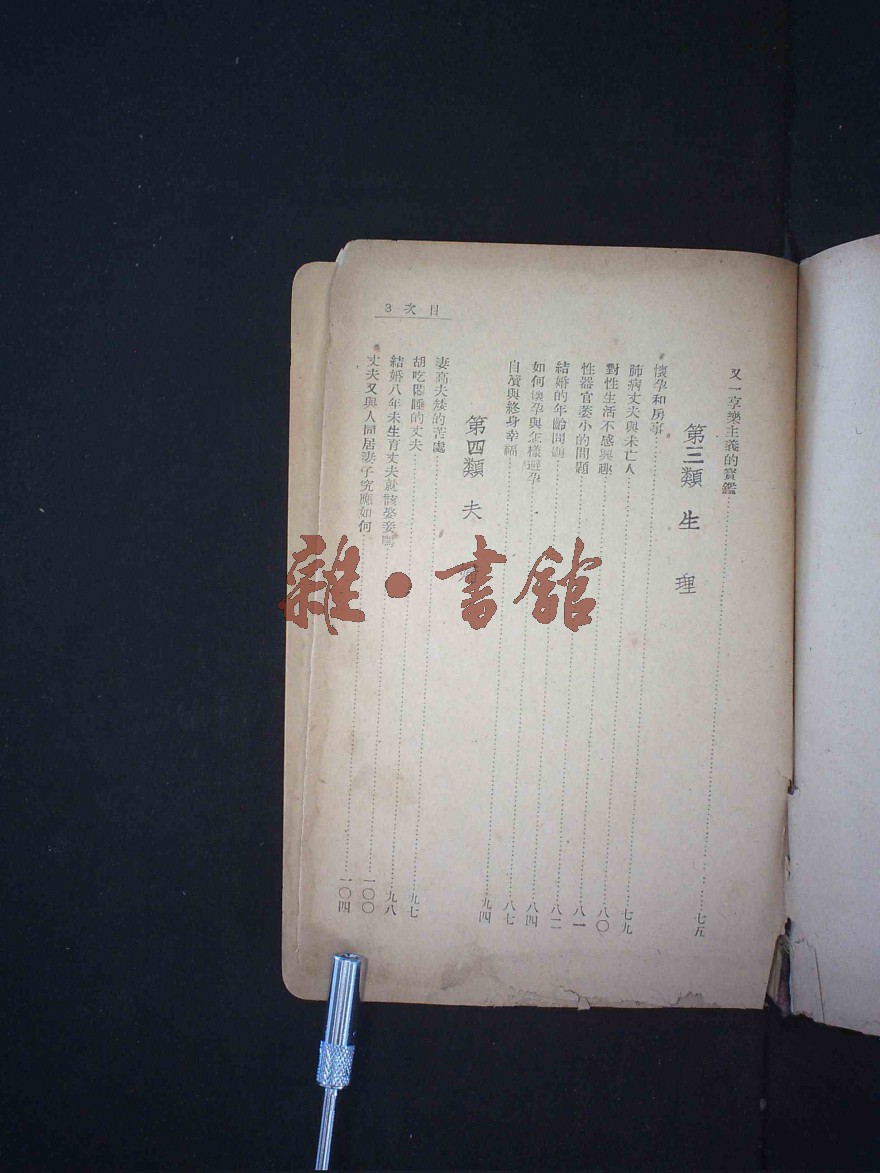 目次 3
又一享樂主義的寶鑑……七五
第三類 生 理
懷孕和房事……七九
肺病丈夫與未亡人……八〇
對性生活不感興趣……八一
性器官萎小的問題……八二
結婚的年齡問題……八四
如何懷孕與怎樣避孕……八七
自瀆與終身幸福……九四
第四類 夫
妻高夫矮的苦處……九七
胡吃悶睡的丈夫……九八
結婚八年未生育丈夫就該娶妾嗎……一〇〇
丈夫又與人同居妻子究應如何……一〇四
雜·書館